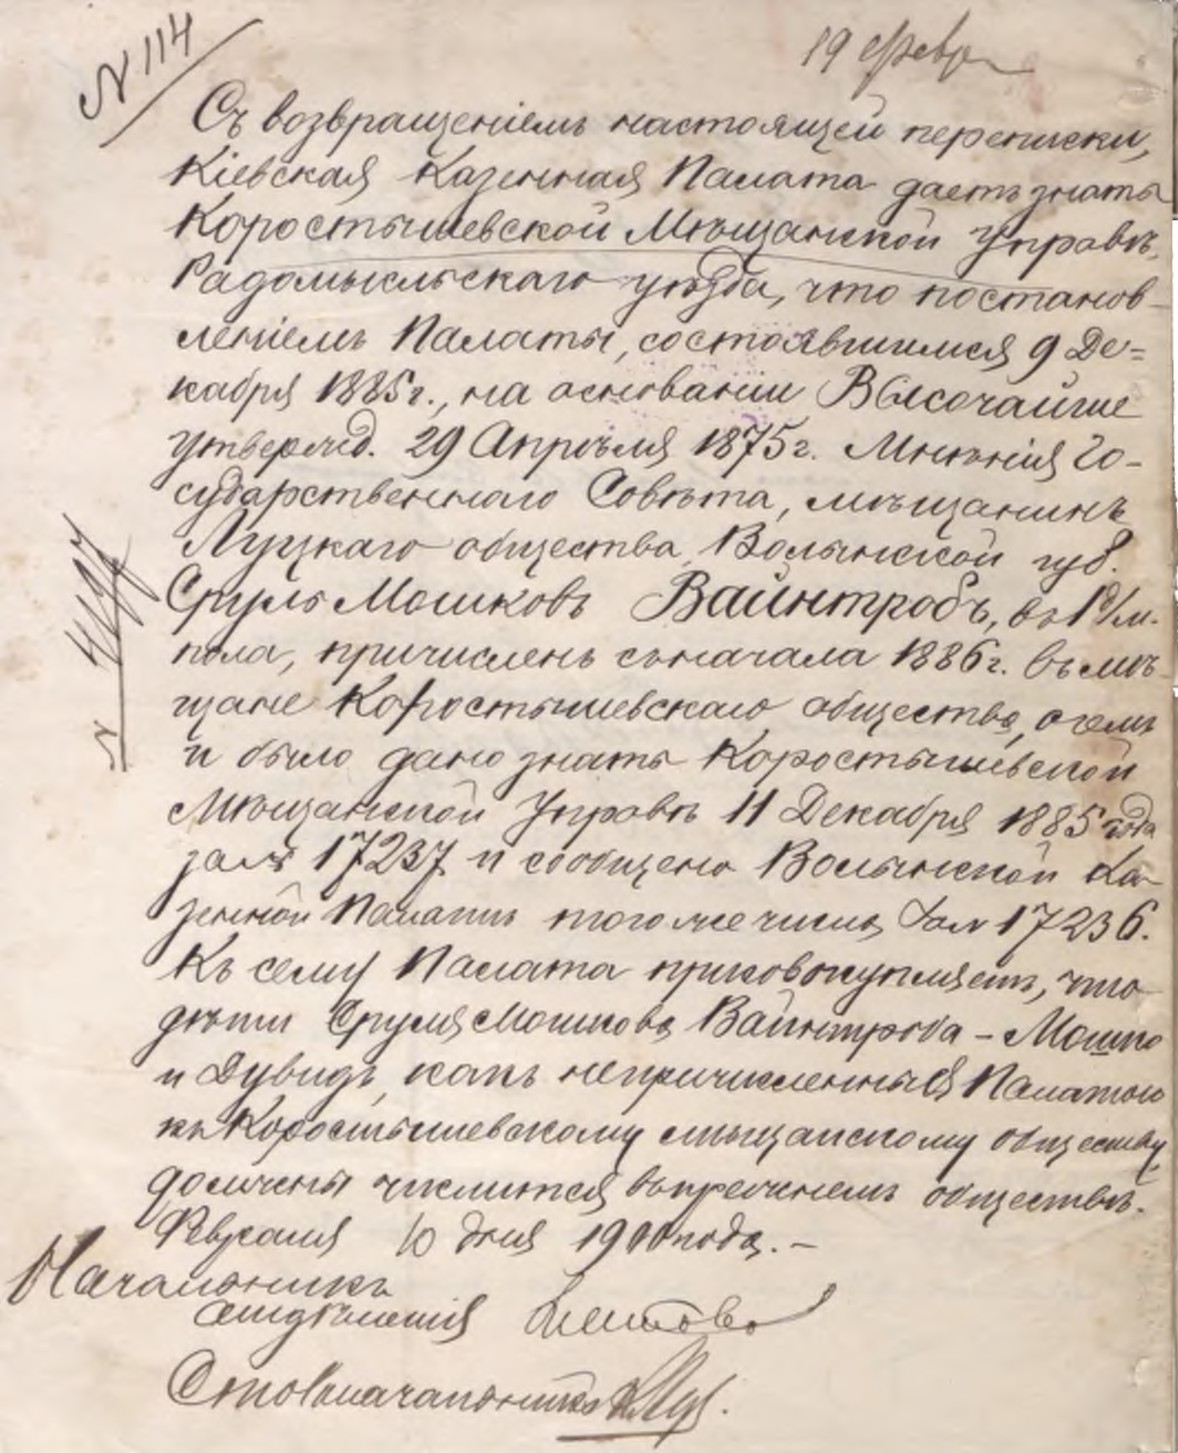 N 114
19 февр
Съ возвращеніемъ настоящей переписки,
Кіевская Казенная Палата даетъ знать
Коростышевской Мѣщанской Управѣ,
Радомысльскаго уѣзда, что постанов-
леніемъ Палаты, состоявшимся 9 Де=
кабря 1885 г., на основаніи Высочайше
утвержд. 29 Апрѣля 1875 г. Мнѣнія Го-
сударственнаго Совѣта, мѣщанинъ
Луцкаго общества Волынской губ.
Сруль Мошковъ Вайнтробъ, въ 1 д/м.
пола, причисленъ съ начала 1886 г. въ мѣ-
щане Коростышевскаго общества, о чемъ
и было дано знать Коростышевской
Мѣщанской Управѣ 11 Декабря 1885 года
за № 17237 и сообщено Волынской Ка-
зенной Палатѣ того же числа за № 17236.
Къ сему Палата присовокупляетъ, что
дѣти Сруля Мошкова Вайнтроба – Мошко
и Дувидъ, какъ непричисленные Палатою
къ Коростышевскому мѣщанскому обществу,
должны числится въ прежнемъ обществѣ.
Февраля 10 дня 1900 года. –
Начальникъ
отдѣленія
Столоначальникъ